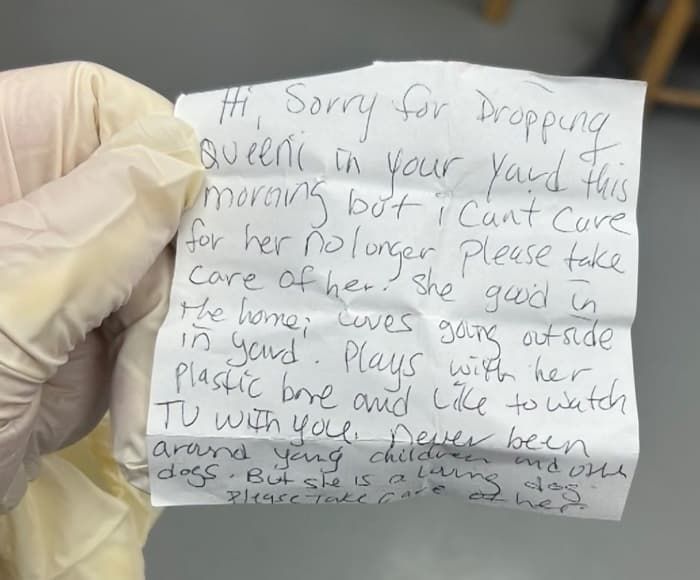 Hi, Sorry for Dropping
Queeni in your yard this
morning but i cant care
for her no longer please take
care of her. She good in
the home; loves going outside
in yard. Plays with her
Plastic bone and Like to watch
TU with you. Never been
around yong children and
dogs. But she is a loving dog.
Please Take care of her.